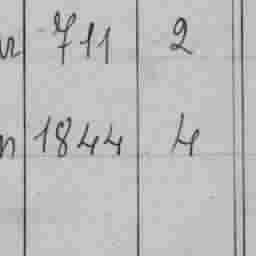 711 2
n 1844 4